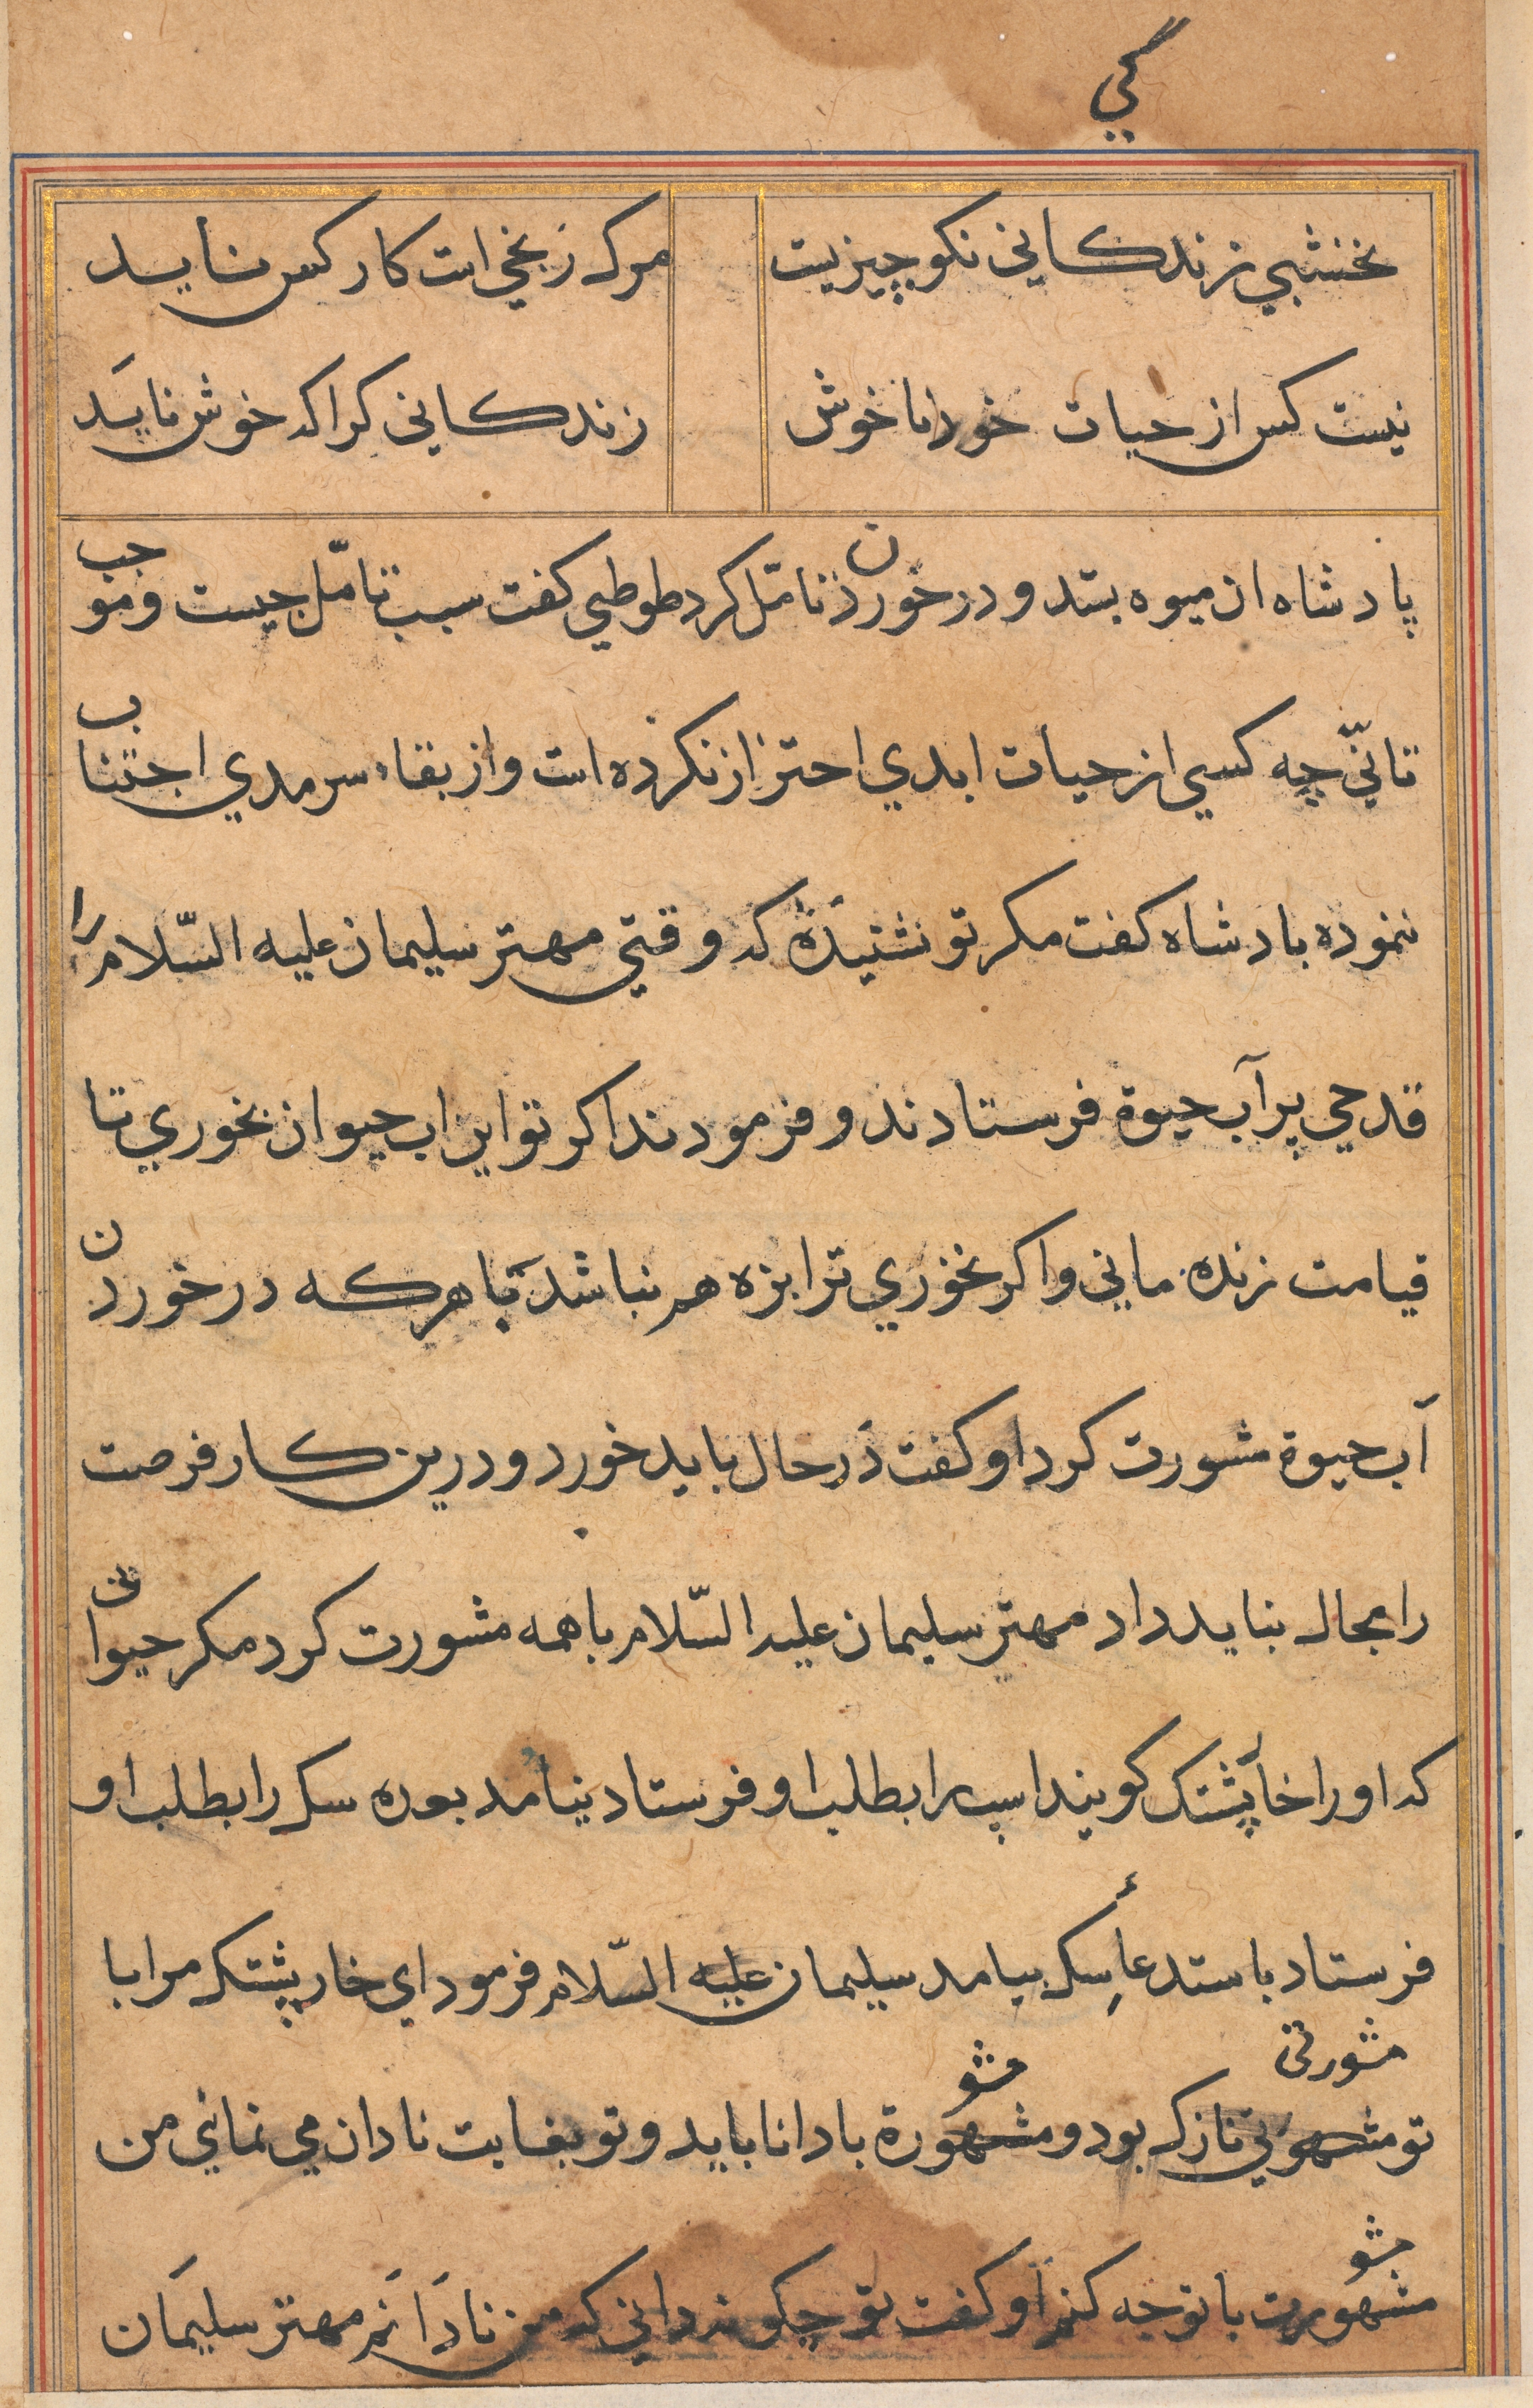 گي
نخشبي زندكاني نكو چيزيست
مرك زنجي است كار كس نايد
نيست كس از حيات خود ناخوش
زندكاني كرا كه خوش نايَد
پادشاه ان ميوه بستد و در خوردن تامّل كرد طوطي كفت سبب تامّل چيست و موجب
تانّي چه كسي از حيات ابدي احتراز نكرده است و از بقاء سرمدي اجتناب
ننموده بادشاه كفت مكر تو نشنيدهٔ كه وقتي مهتر سليمان عليه السّلام را
قدحي پر آب حيوة فرستادند و فرمودند اكر تو اين اب حيوان بخوري تا
قيامت زنده ماني و اكر نخوري ترا بزه هم نباشد با هركه در خوردن
آب حيوة مشورت كرد او كفت در حال بايد خورد و درين كار فرصت
را مجال نبايد داد مهتر سليمان عليه السّلام با همه مشورت كرد مكر حيواني
كه او را خارپشتك كويند اسپ را بطلب او فرستاد نيامد بوده سك را بطلب او
فرستاد باستدعأ سك بيامد سليمان عليه السّلام فرمود اي خار پشتك مرا با
تو مشورتي نازك بود و مشورة با دانا بايد و تو بغايت نادان مي نماني من
مشورت با تو چه كنم او كفت تو چكونه داني كه من نادانم مهتر سليمان